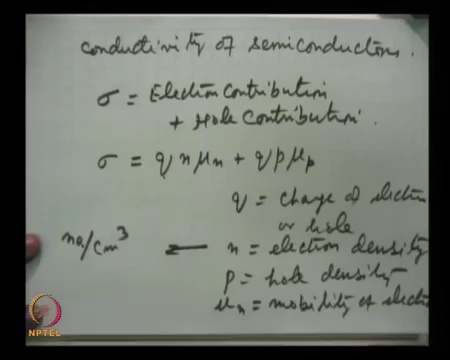 conductivity of semiconductors.
σ = Electron contribution
+ Hole contribution.
σ = q n μn + q p μp
q = charge of electron
or hole
no/cm³ ← n = electron density
p = hole density
μn = mobility of electro
NPTEL